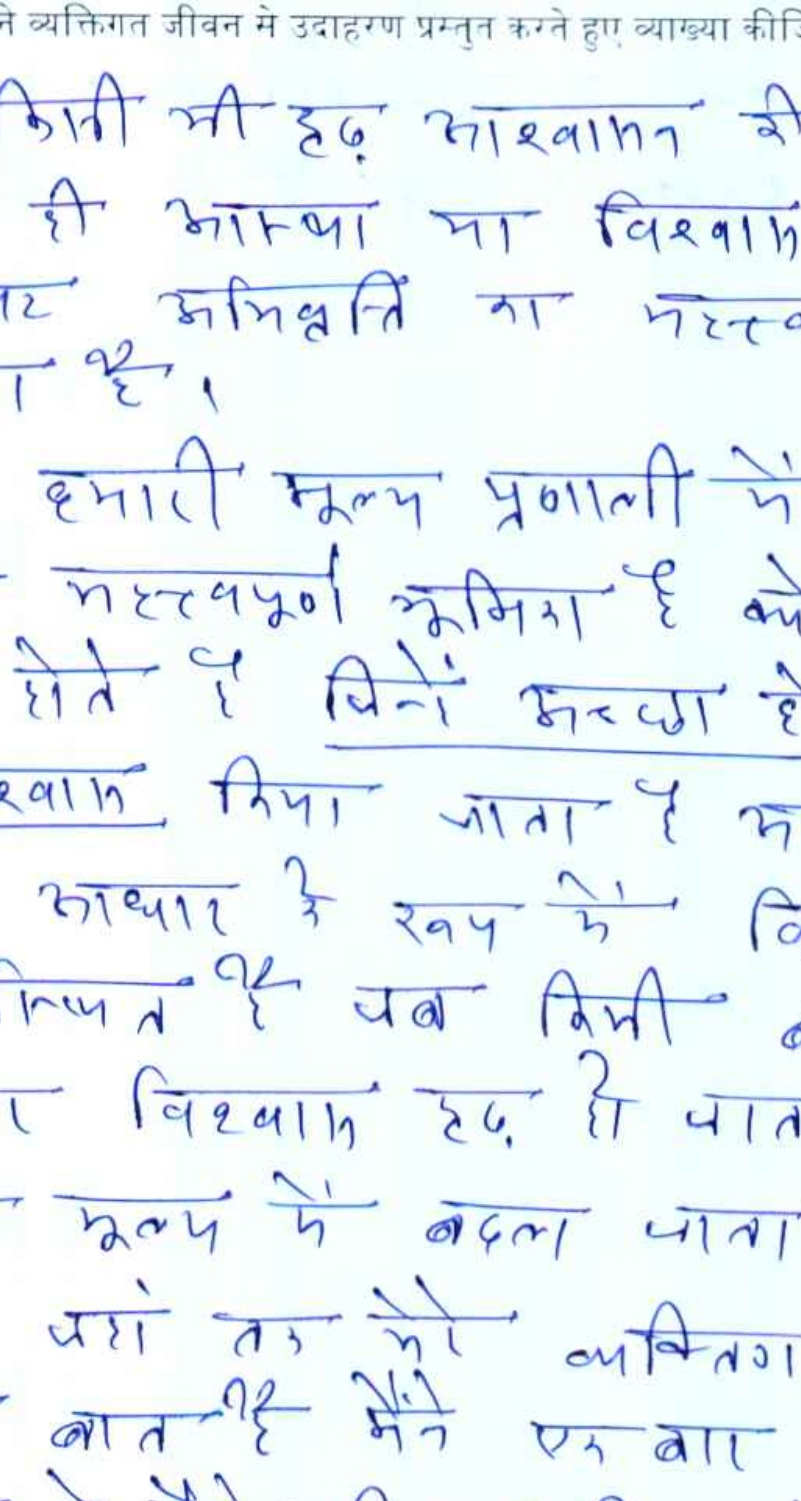 ने व्यक्तिगत जीवन से उदाहरण प्रस्तुत करते हुए व्याख्या कीजि
किसी भी दृढ़ आश्वासन की
ही आस्था या विश्वास
अभिवृत्ति का महत्त्व
है।
हमारी मूल्य प्रणाली में
महत्त्वपूर्ण भूमिका है क्यो
होते है जिनमें अच्छा हो
श्वास किया जाता है
आधार के रूप में वि
है जब किसी
विश्वास दृढ़ हो जात
मूल्य में बदल जाता
जहां तक मेरे व्यक्तिग
बात है मैंने एक बार